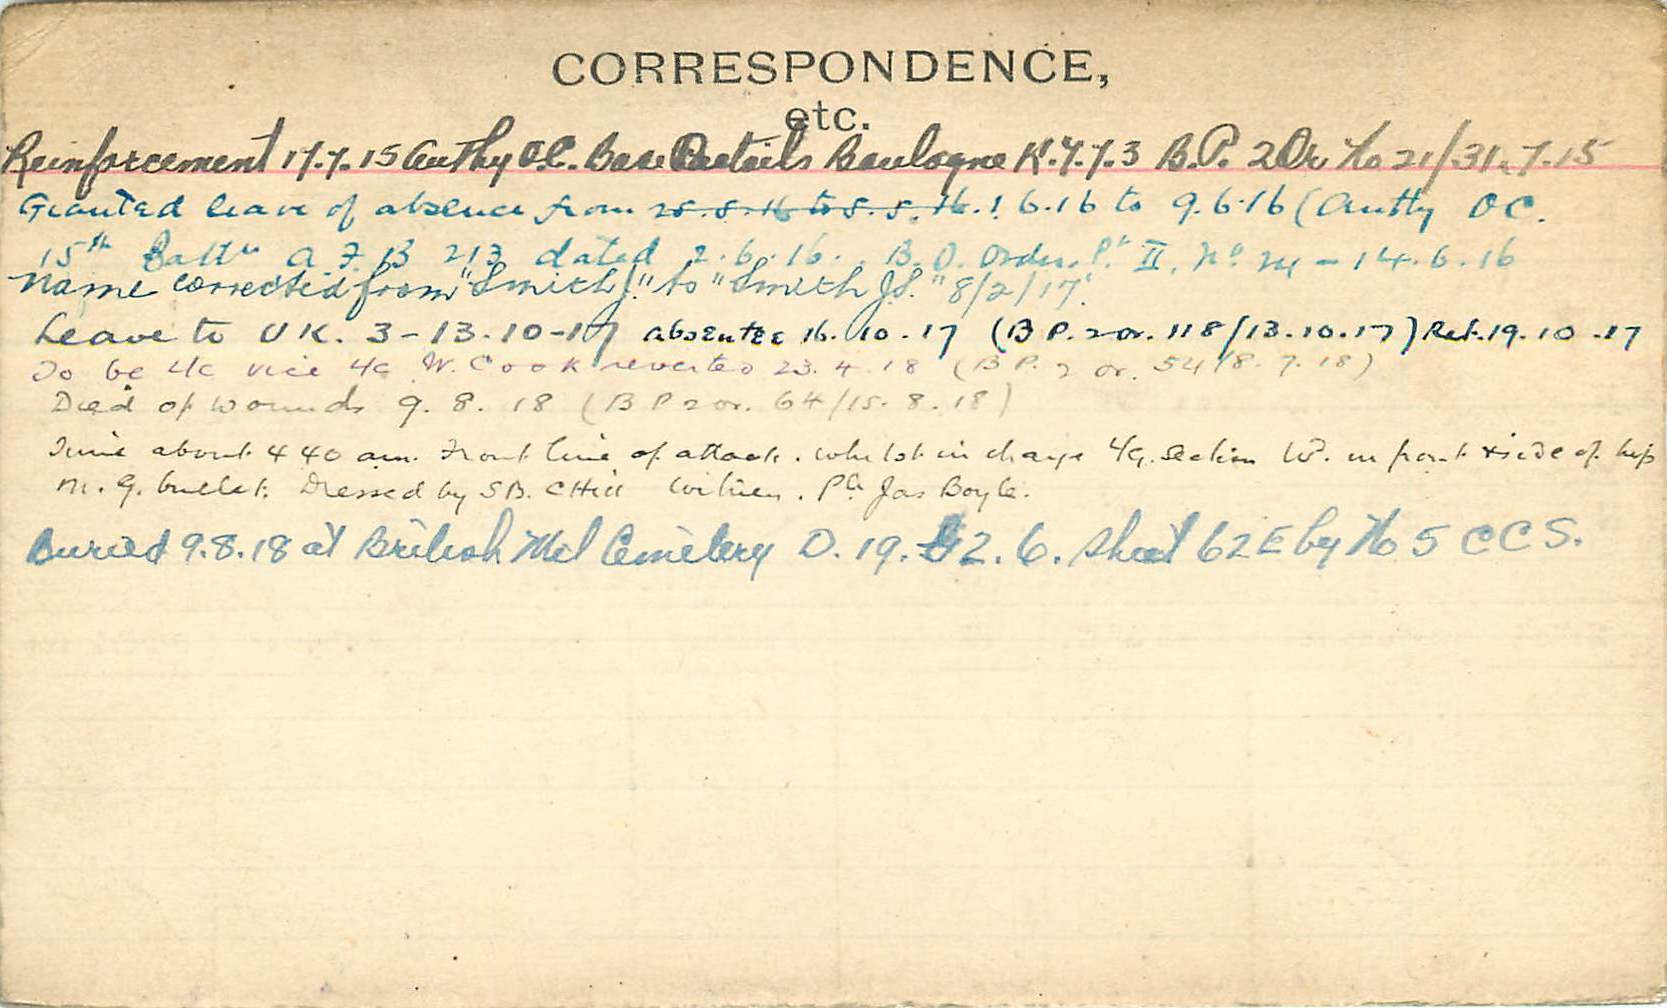 CORRESPONDENCE,
etc.
Reinforcement 17.7.15 Authy O.C. Base Details Boulogne K.7.7.3 B.P. 2 Or No 21/31.7.15
Granted leave of absence from 25.5.16 to 5.5.16. 1.6.16 to 9.6.16 (Authy OC.
15th Battn A.F.B 213 dated 2.6.16. B.O. Order Pt II. No 24 - 14.6.16
Name corrected from "Smith J." to "Smith J.S." 8/2/17.
Leave to UK. 3-13.10-17 absentee 16.10.17 (B P. 2 or. 118/13.10.17) Ret. 19.10.17
To be L/c vice L/c W. Cook reverted 23.4.18 (B P. 2 or. 54/8.7.18)
Died of wounds 9.8.18 (B P 2 or. 64/15.8.18)
Time about 4 40 am. Front line of attack. whilst in charge L/G. Section W. in front & side of hip
M.G. bullet. Dressed by S.B. C Hill Witness. Pte Jas Boyle.
Buried 9.8.18 at British Mil Cemetery D. 19. 2. 6. Sheet 62E by No 5 C C S.